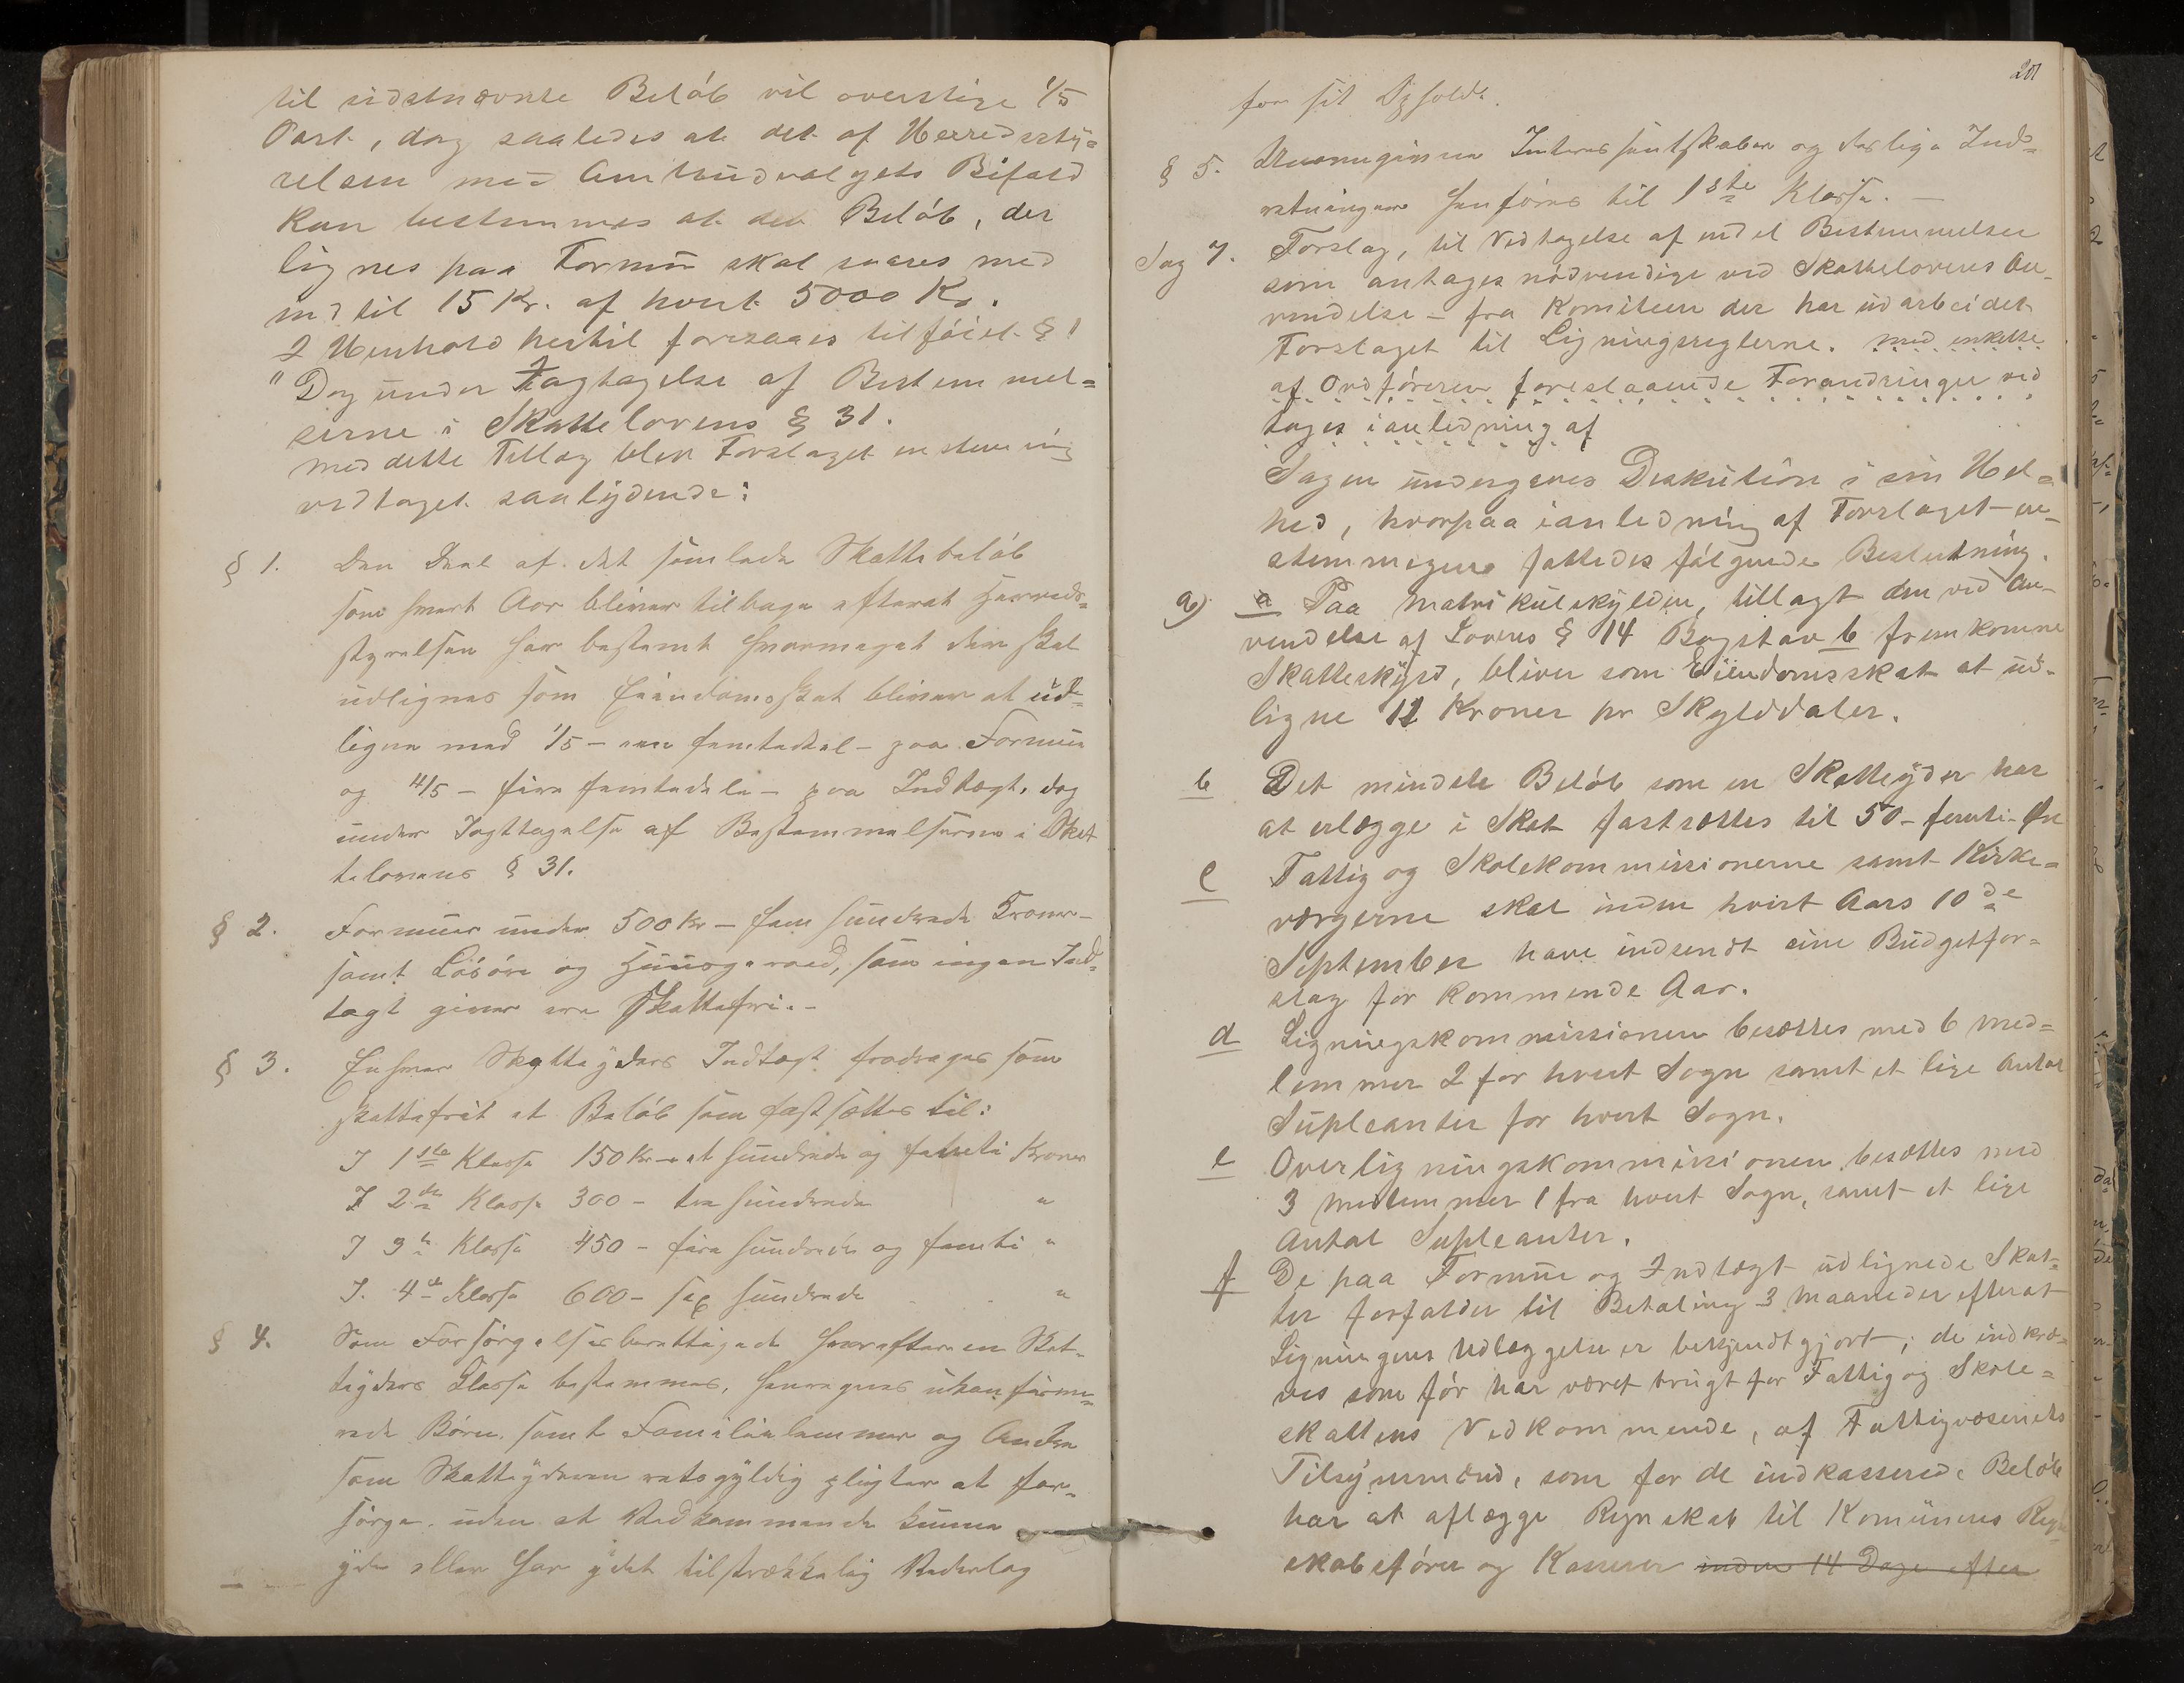 til sidstnævnte Beløb vil overstige 1/5
Part, dog saaledes at det af Herredssty=
relsen med Amtsudvalgets Bifald
kan bestemmes at det Beløb, der
lignes paa Formue skal svares med
indtil 15 Kr. af hvert 5000 Kr.
I Henhold hertil foresaaes tilføiet § 1
"Dog under Iagtagelse af Bestemmel=
serne i Skattelovens § 31.
Med dette Tillæg blev Forslaget enstemmig
vedtaget saalydende:
§ 1. Den Deel af det samlede Skattebeløb
som hvert Aar bliver tilbage efterat Herreds=
styrelsen har bestemt hvormeget der skal
udlignes som Eiendomsskat bliver at ud=
ligne med 1/5 - een femtedel - paa Formue
og 4/5 - fire femtedele - paa Indtægt, dog
under Iagttagelse af Bestemmelserne i Skat
telovens § 31.
§ 2. Formuer under 500 Kr - fem hundrede Kroner -
samt Løsøre og Huusgeraad, som ingen Ind=
tægt giver ere skattefri. -
§ 3. Enhver Skatteyders Indtægt fradrages som
skattefrit et Beløb som fastsættes til:
I 1ste Klasse 150 Kr - et hundrede og femti Kroner
I 2de Klasse 300 - tre hundrede "
I 3de Klasse 450 - fire hundrede og femti "
I 4de Klasse 600 - sex hundrede "
§ 4. Som Forsørgelsesberettigede hvorefter en Skat=
teyders Klasse bestemmes, henregnes ukonfirme=
rede Børn samt Familielemmer og Andre
som Skatteyderen retsgyldig pligter at for=
sørge, uden at Vedkommende kunne
yde eller har ydet tilstrækkelig Vederlag
201
for sit Ophold.
§ 5. Interessentskaber og Ind=
retninger henføres til 1ste Klasse. -
Sag 7. Forslag, til Vedtagelse af endel Bestemmelser
som antages nødvendige ved Skattelovens An=
vendelse - fra Komiteen der har udarbeidet
Forslaget til Ligningsreglerne. med enkelte
af Ordføreren foreslaaende Forandringer ved
tages ianledning af
Sagen undergaves Diskution i sin Hel=
hed, hvorpaa ianledning af Forslaget en=
stemmigen fattedes følgende Beslutning.
a) a Paa Matrikulskylden, tillagt den ved An=
vendelse af Lovens § 14 Bogstav b fremkomne
Skatteskyld, bliver som Eiendomsskat at ud=
ligne 12 Kroner pr Skylddaler.
b Det mindste Beløb som en Skatteyder har
at erlægge i Skat fastsættes til 50 - femti Øre
c Fattig og Skolekommissionerne samt Kirke=
værgerne skal inden hvert Aars 10de
September have indsendt sine Budgetfor=
slag for kommende Aar.
d Ligningskommissionen besættes med 6 Med=
lemmer 2 for hvert Sogn samt et lige Antal
Supleanter for hvert Sogn.
e Overligningskommissionen besættes med
3 Medlemmer 1 fra hvert Sogn, samt et lige
Antal Supleanter.
f De paa Formue og Indtægt udlignede Skat=
ter forfalder til Betaling 3 Maaneder efterat
Ligningens Udlæggelse er bekjendtgjort; de indkræ=
ves som før har været brugt for Fattig og Skole=
skattens Vedkommende, af Fattigvæsenets
Tilsynsmænd, som for de indkasserede Beløb
har at aflægge Regnskab til Komunens Regn
skabsfører og Kasserer inden 14 Dage efter